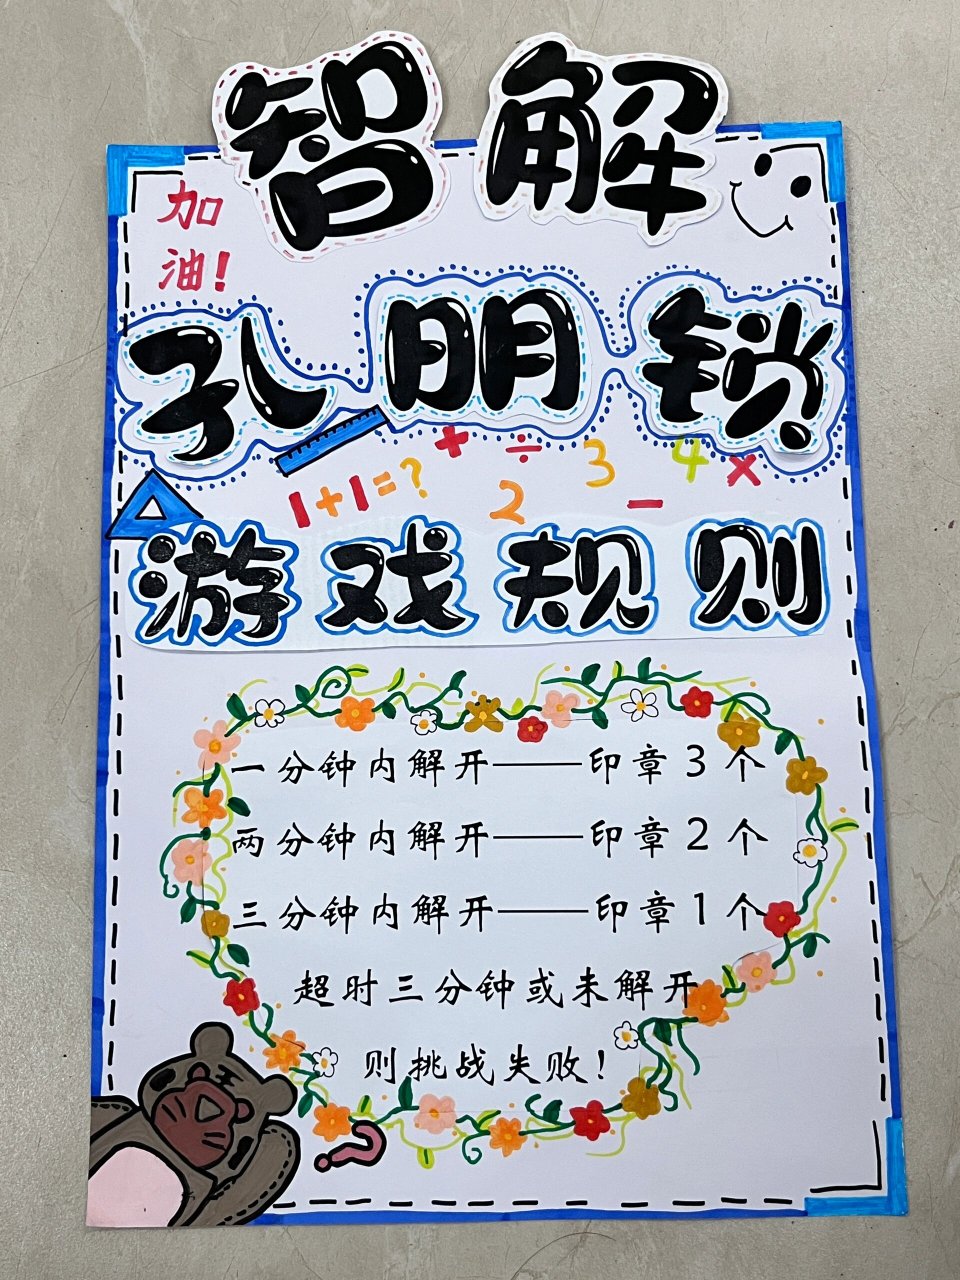 智解
加
油!
孔明锁
+ ÷ 3 4 ×
1+1=? 2 -
游戏规则
一分钟内解开——印章3个
两分钟内解开——印章2个
三分钟内解开——印章1个
超时三分钟或未解开
则挑战失败!
?